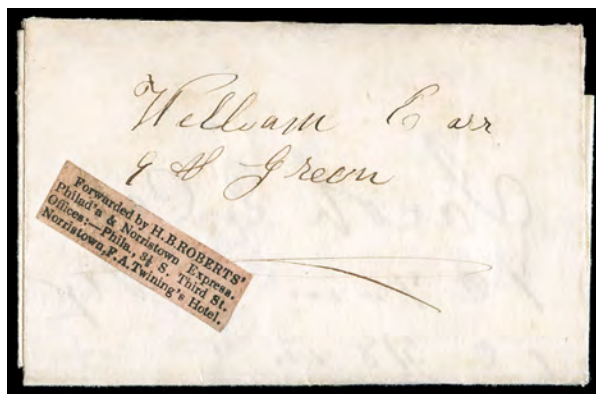 William Carr
9th Green
Forwarded by H.B.ROBERTS'
Philad'a & Norristown Express.
Offices:—Phila., 3½ S. Third St.
Norristown, F.A.Twining's Hotel.